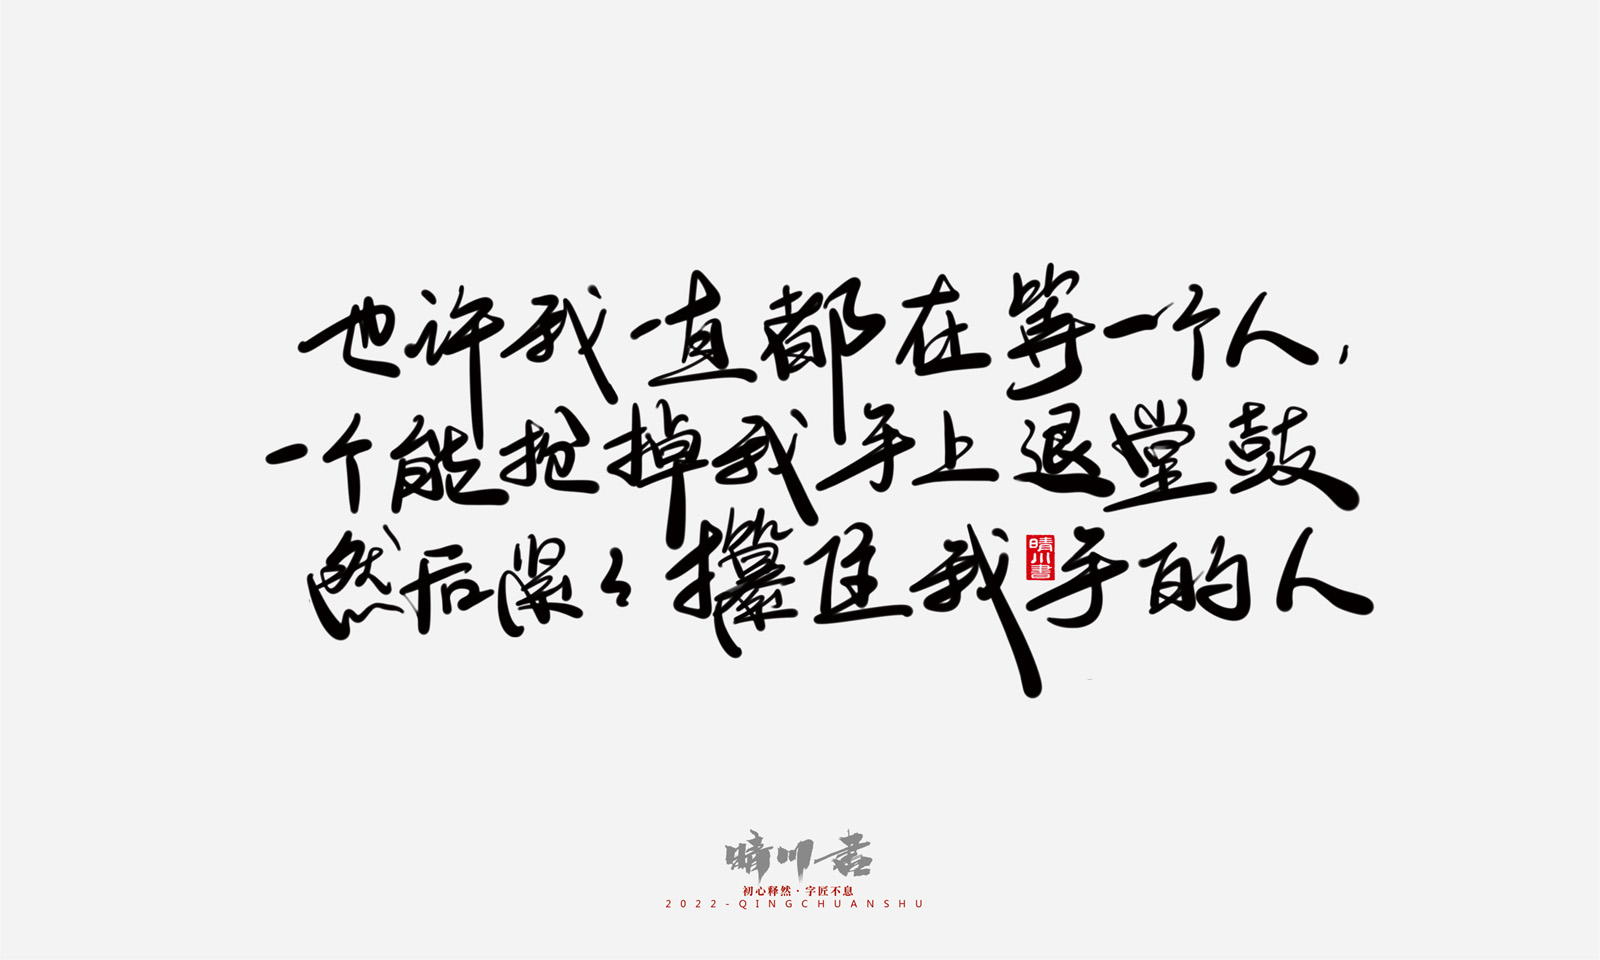 也许我一直都在等一个人，
一个能抢掉我手上退堂鼓
然后紧々攥住我手的人
晴川書
晴川书
初心释然·字匠不息
2022-QINGCHUANSHU